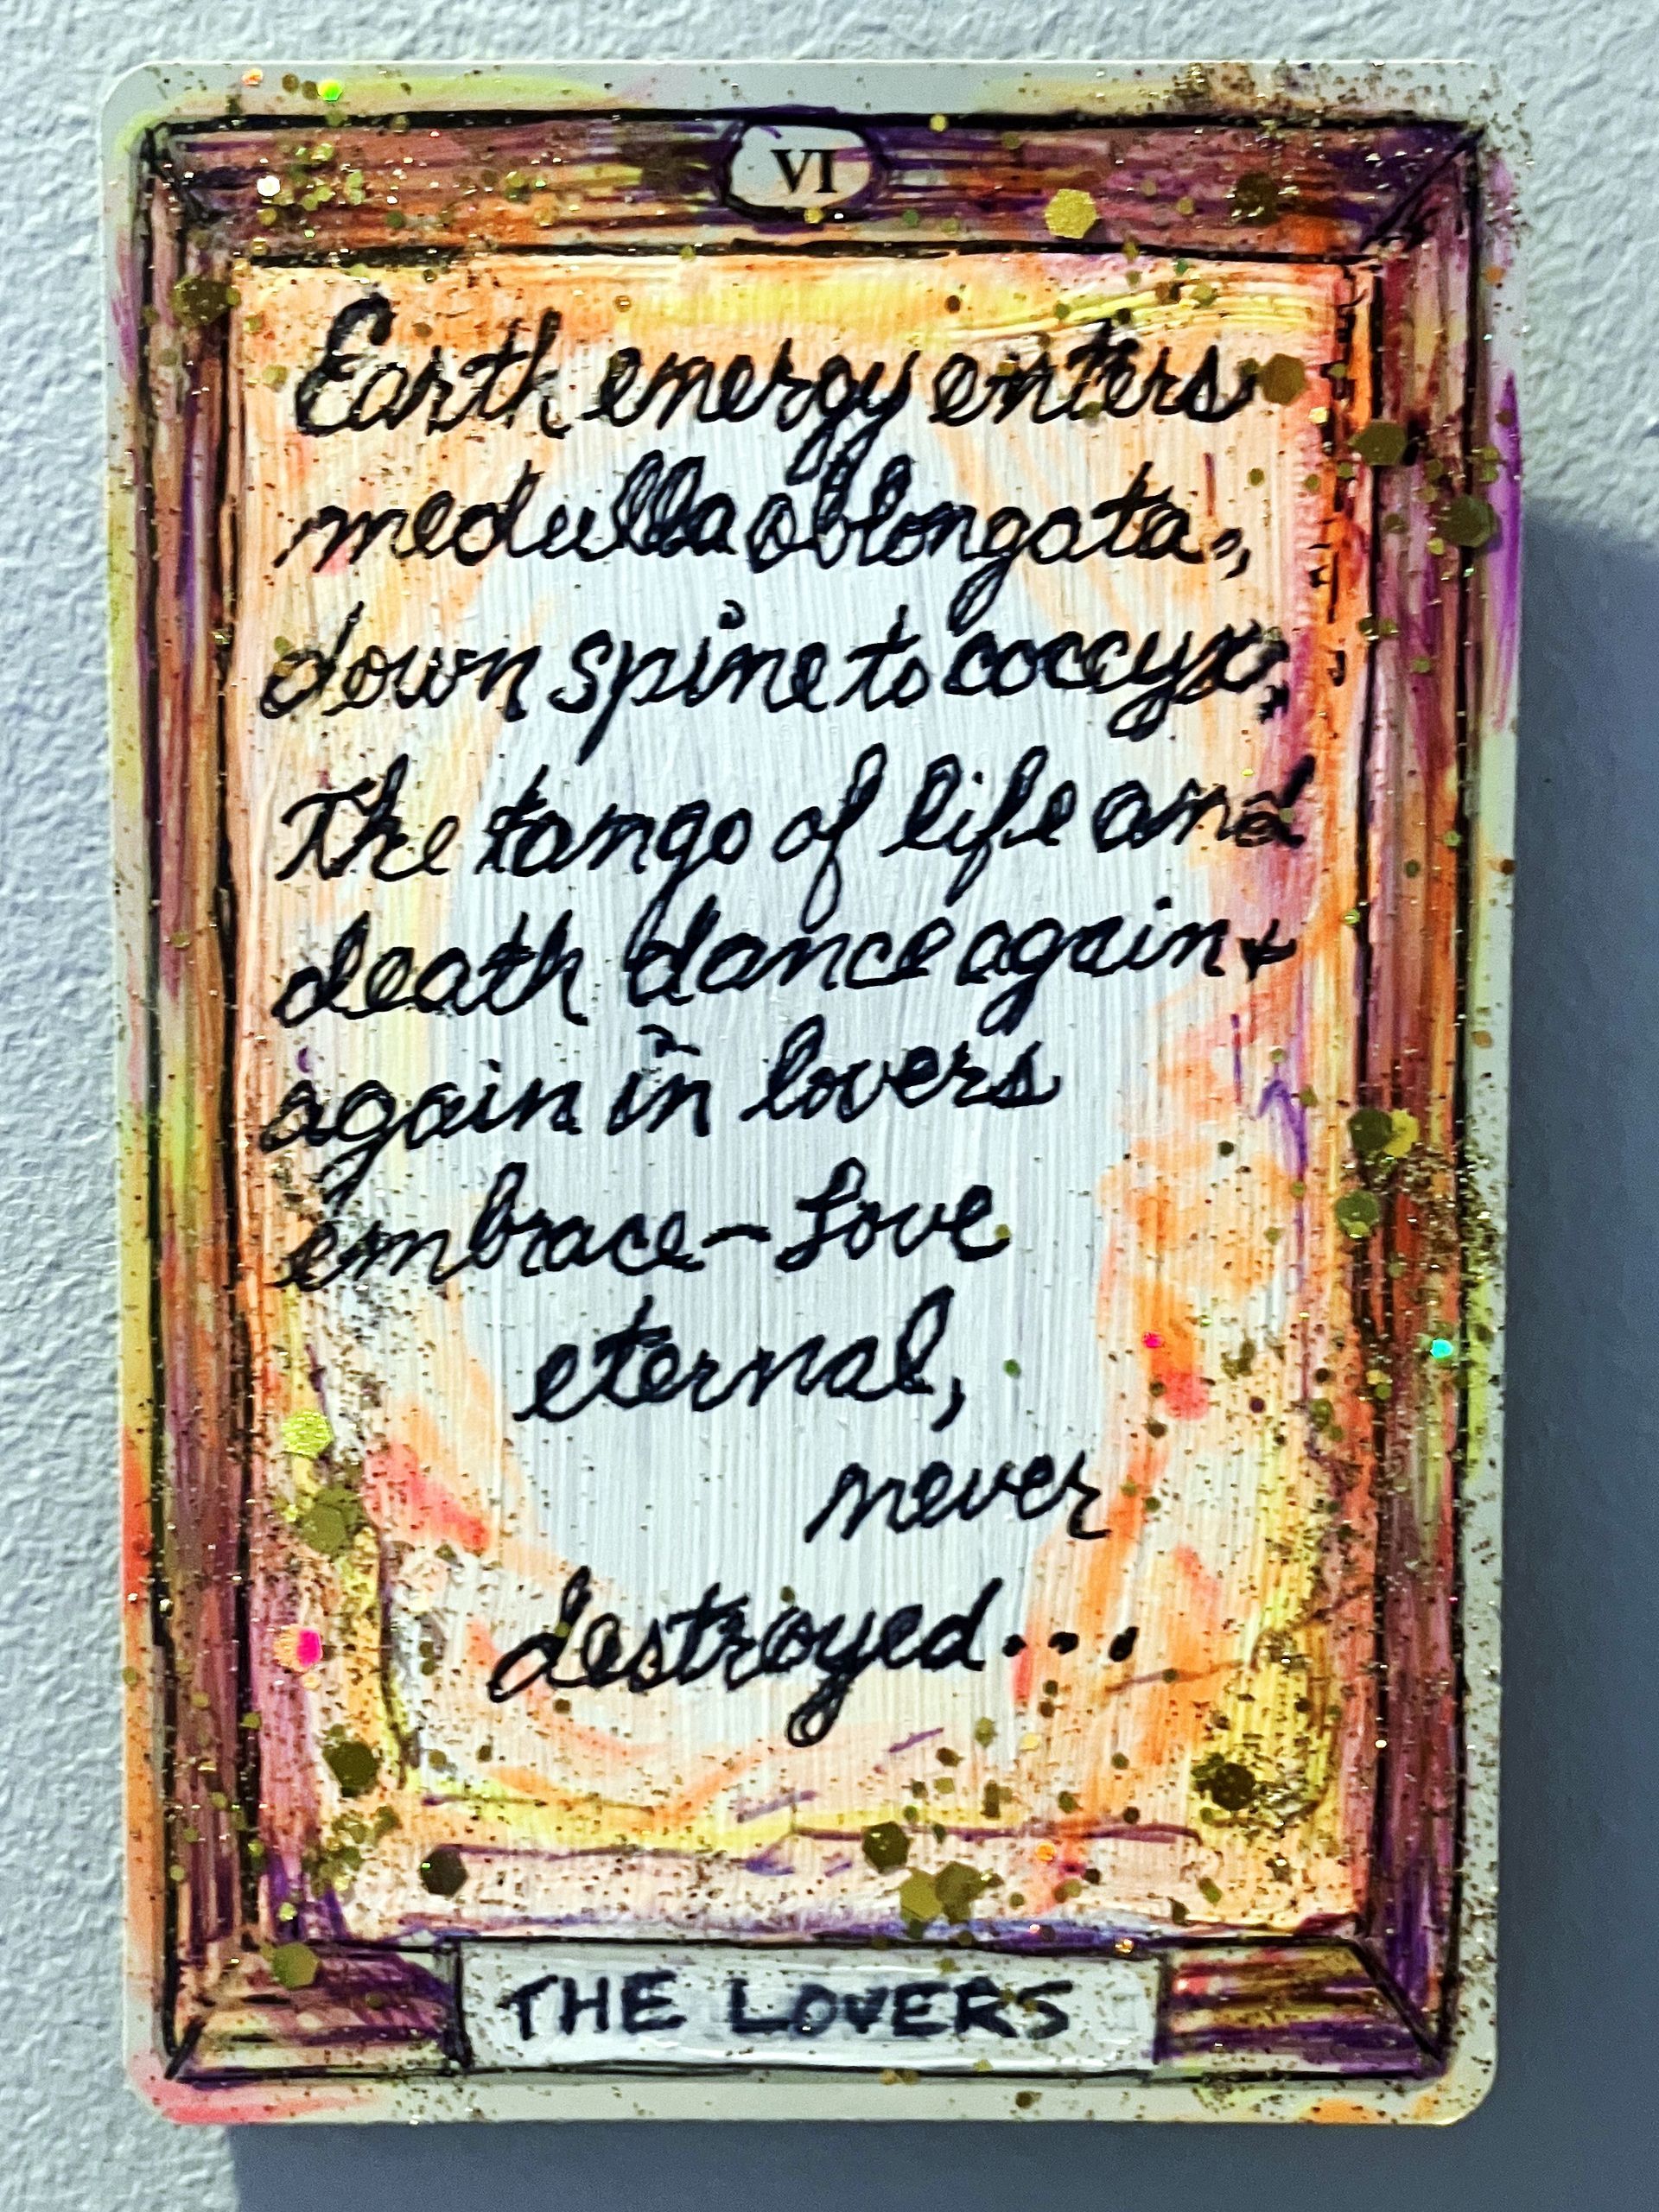 VI
Earth energy enters
medulla oblongata,
down spine to coccyx,
The tango of life and
death dance again +
again in lovers
embrace – Love
eternal,
never
destroyed...
THE LOVERS